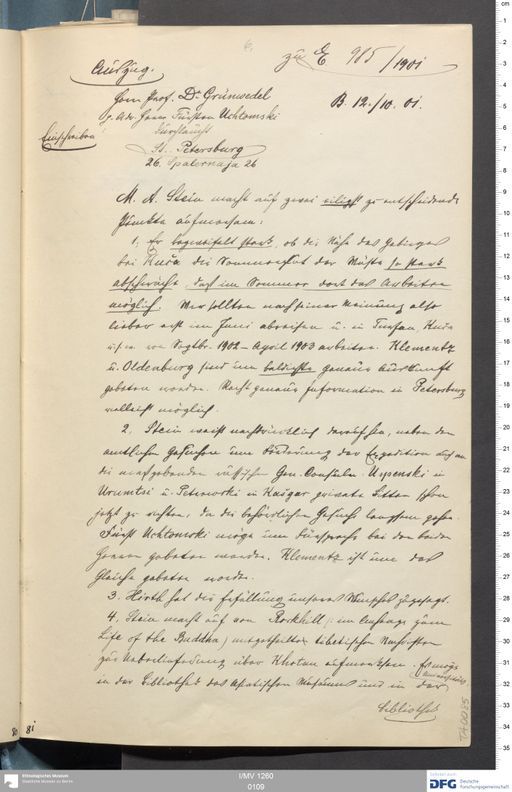 6.
zu E 985/1901
Auszug.
Herrn Prof. Dr Grünwedel
B. 12./10. 01.
p. Adr. Herrn Fürsten Uchtomski
Einschreiben!
Durchlaucht
St. Petersburg
26. Spalernaja 26
M. A. Stein macht auf zwei eiligst zu entscheidende
Punkte aufmerksam:
1. Er bezweifelt stark, ob die Nähe des Gebirges
bei Kuča die Sommerglut der Wüste so stark
abschwäche, daß im Sommer dort das Arbeiten
möglich. Wir sollten nach seiner Meinung also
lieber erst im Juni abreisen u. in Turfan Kuča
u.s.w. von Septbr. 1902 – April 1903 arbeiten. Klementz
u. Oldenburg sind um baldigste genaue Auskunft
gebeten worden. Recht genaue Information in Petersburg
vielleicht möglich.
2. Stein weist nachdrücklich darauf hin, neben den
amtlichen Gesuchen um Förderung der Expedition auch an
die maßgebenden russischen Gen. Consuln Uspenski in
Urumtsi u. Petrowski in Kašgar private Bitten schon
jetzt zu richten, da die behördlichen Gesuche langsam gehen.
Fürst Uchtomski möge um Fürsprache bei den beiden
Herren gebeten werden. Klementz ist um das
Gleiche gebeten worden.
3. Hirth hat die Erfüllung unseres Wunsches zugesagt.
4. Stein macht auf von Rockhill (im Anhange zum
Life of the Buddha) mitgetheilten tibetischen Nachrichten
zur Ueberlieferung über Khotan aufmerksam. Es möge
in der Bibliothek des Asiatischen Museums und in der
Universitäts
Bibliothek
TA 0085
80 81
Ethnologisches Museum
Staatliche Museen zu Berlin
I/MV 1260
0109
DFG Deutsche
Forschungsgemeinschaft